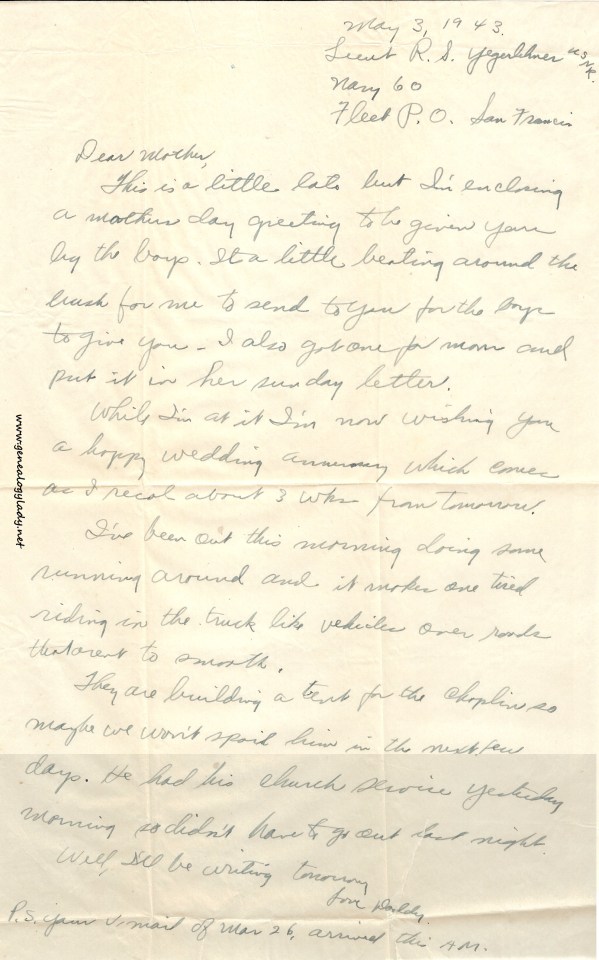 May 3, 1943.
Lieut R. S. Yegerlehner USNR.
Navy 60
Fleet P.O. San Francis
Dear Mother,
This is a little late but I'm enclosing
a mothers day greeting to be given you
by the boys. Its a little beating around the
bush for me to send to you for the boys
to give you - I also got one for mom and
put it in her sunday letter.
While I'm at it I'm now wishing you
a happy wedding which comes
as I recal about 3 wks from tomorrow.
I've been out this morning doing some
running around and it makes one tired
riding in the truck like vehicles over roads
that arent to smooth.
They are building a tent for the chaplin so
maybe we won't spoil him in the next few
days. He had his church service yesterday
morning so didn't have to go out last night.
Well, I'll be writing tomorrow
Love Daddy.
P.S. your V mail of Mar 26, arrived this AM.
www.genealogylady.net